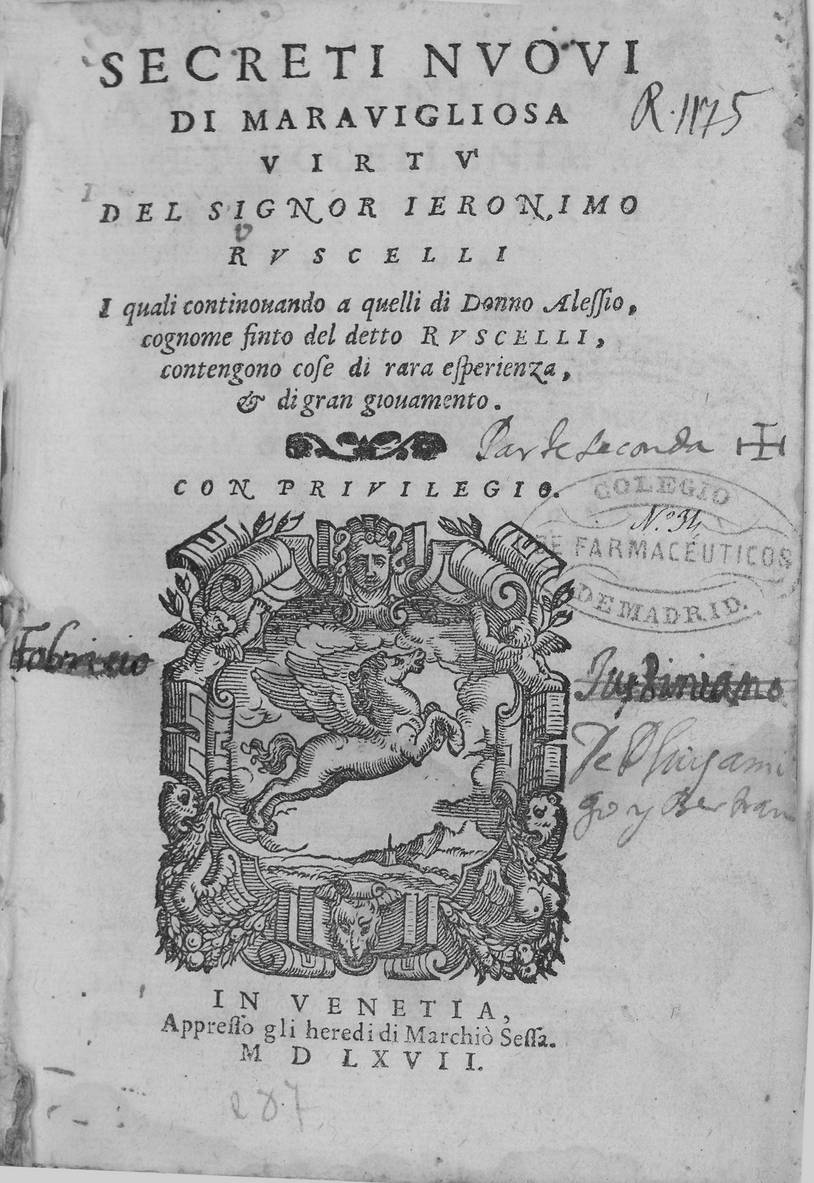 SECRETI NVOVI
DI MARAVIGLIOSA
R. 1175
VIRTV
DEL SIGNOR IERONIMO
RVSCELLI
I quali continouando a quelli di Donno Aleſſio,
cognome finto del detto RVSCELLI,
contengono coſe di rara eſperienza,
& di gran giouamento.
Parte seconda
CON PRIVILEGIO.
COLEGIO
Nº 31,
DE FARMACÉUTICOS
DE MADRID.
Fabricio
IN VENETIA,
Appreſſo gli heredi di Marchiò Seſſa.
M D LXVII.